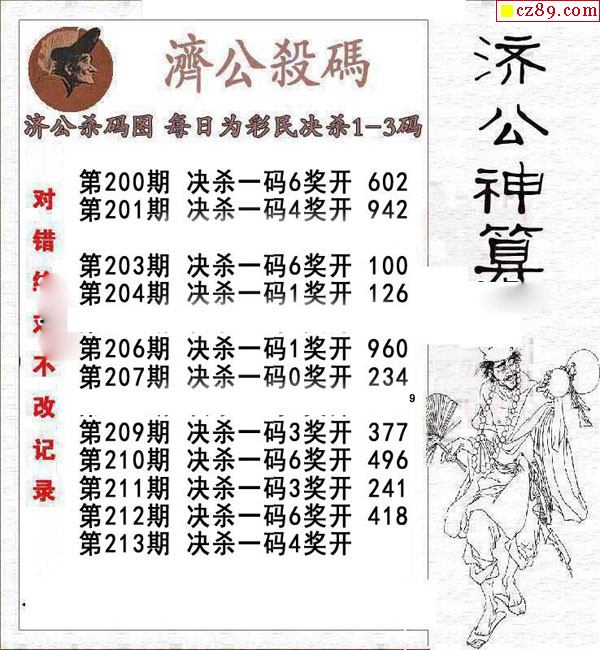 cz89.com
濟公殺碼
济公杀码图 每日为彩民决杀1-3码
第200期 决杀一码6奖开 602
第201期 决杀一码4奖开 942
第203期 决杀一码6奖开 100
第204期 决杀一码1奖开 126
第206期 决杀一码1奖开 960
第207期 决杀一码0奖开 234
9
第209期 决杀一码3奖开 377
第210期 决杀一码6奖开 496
第211期 决杀一码3奖开 241
第212期 决杀一码6奖开 418
第213期 决杀一码4奖开
对错
不改记录
济公神算